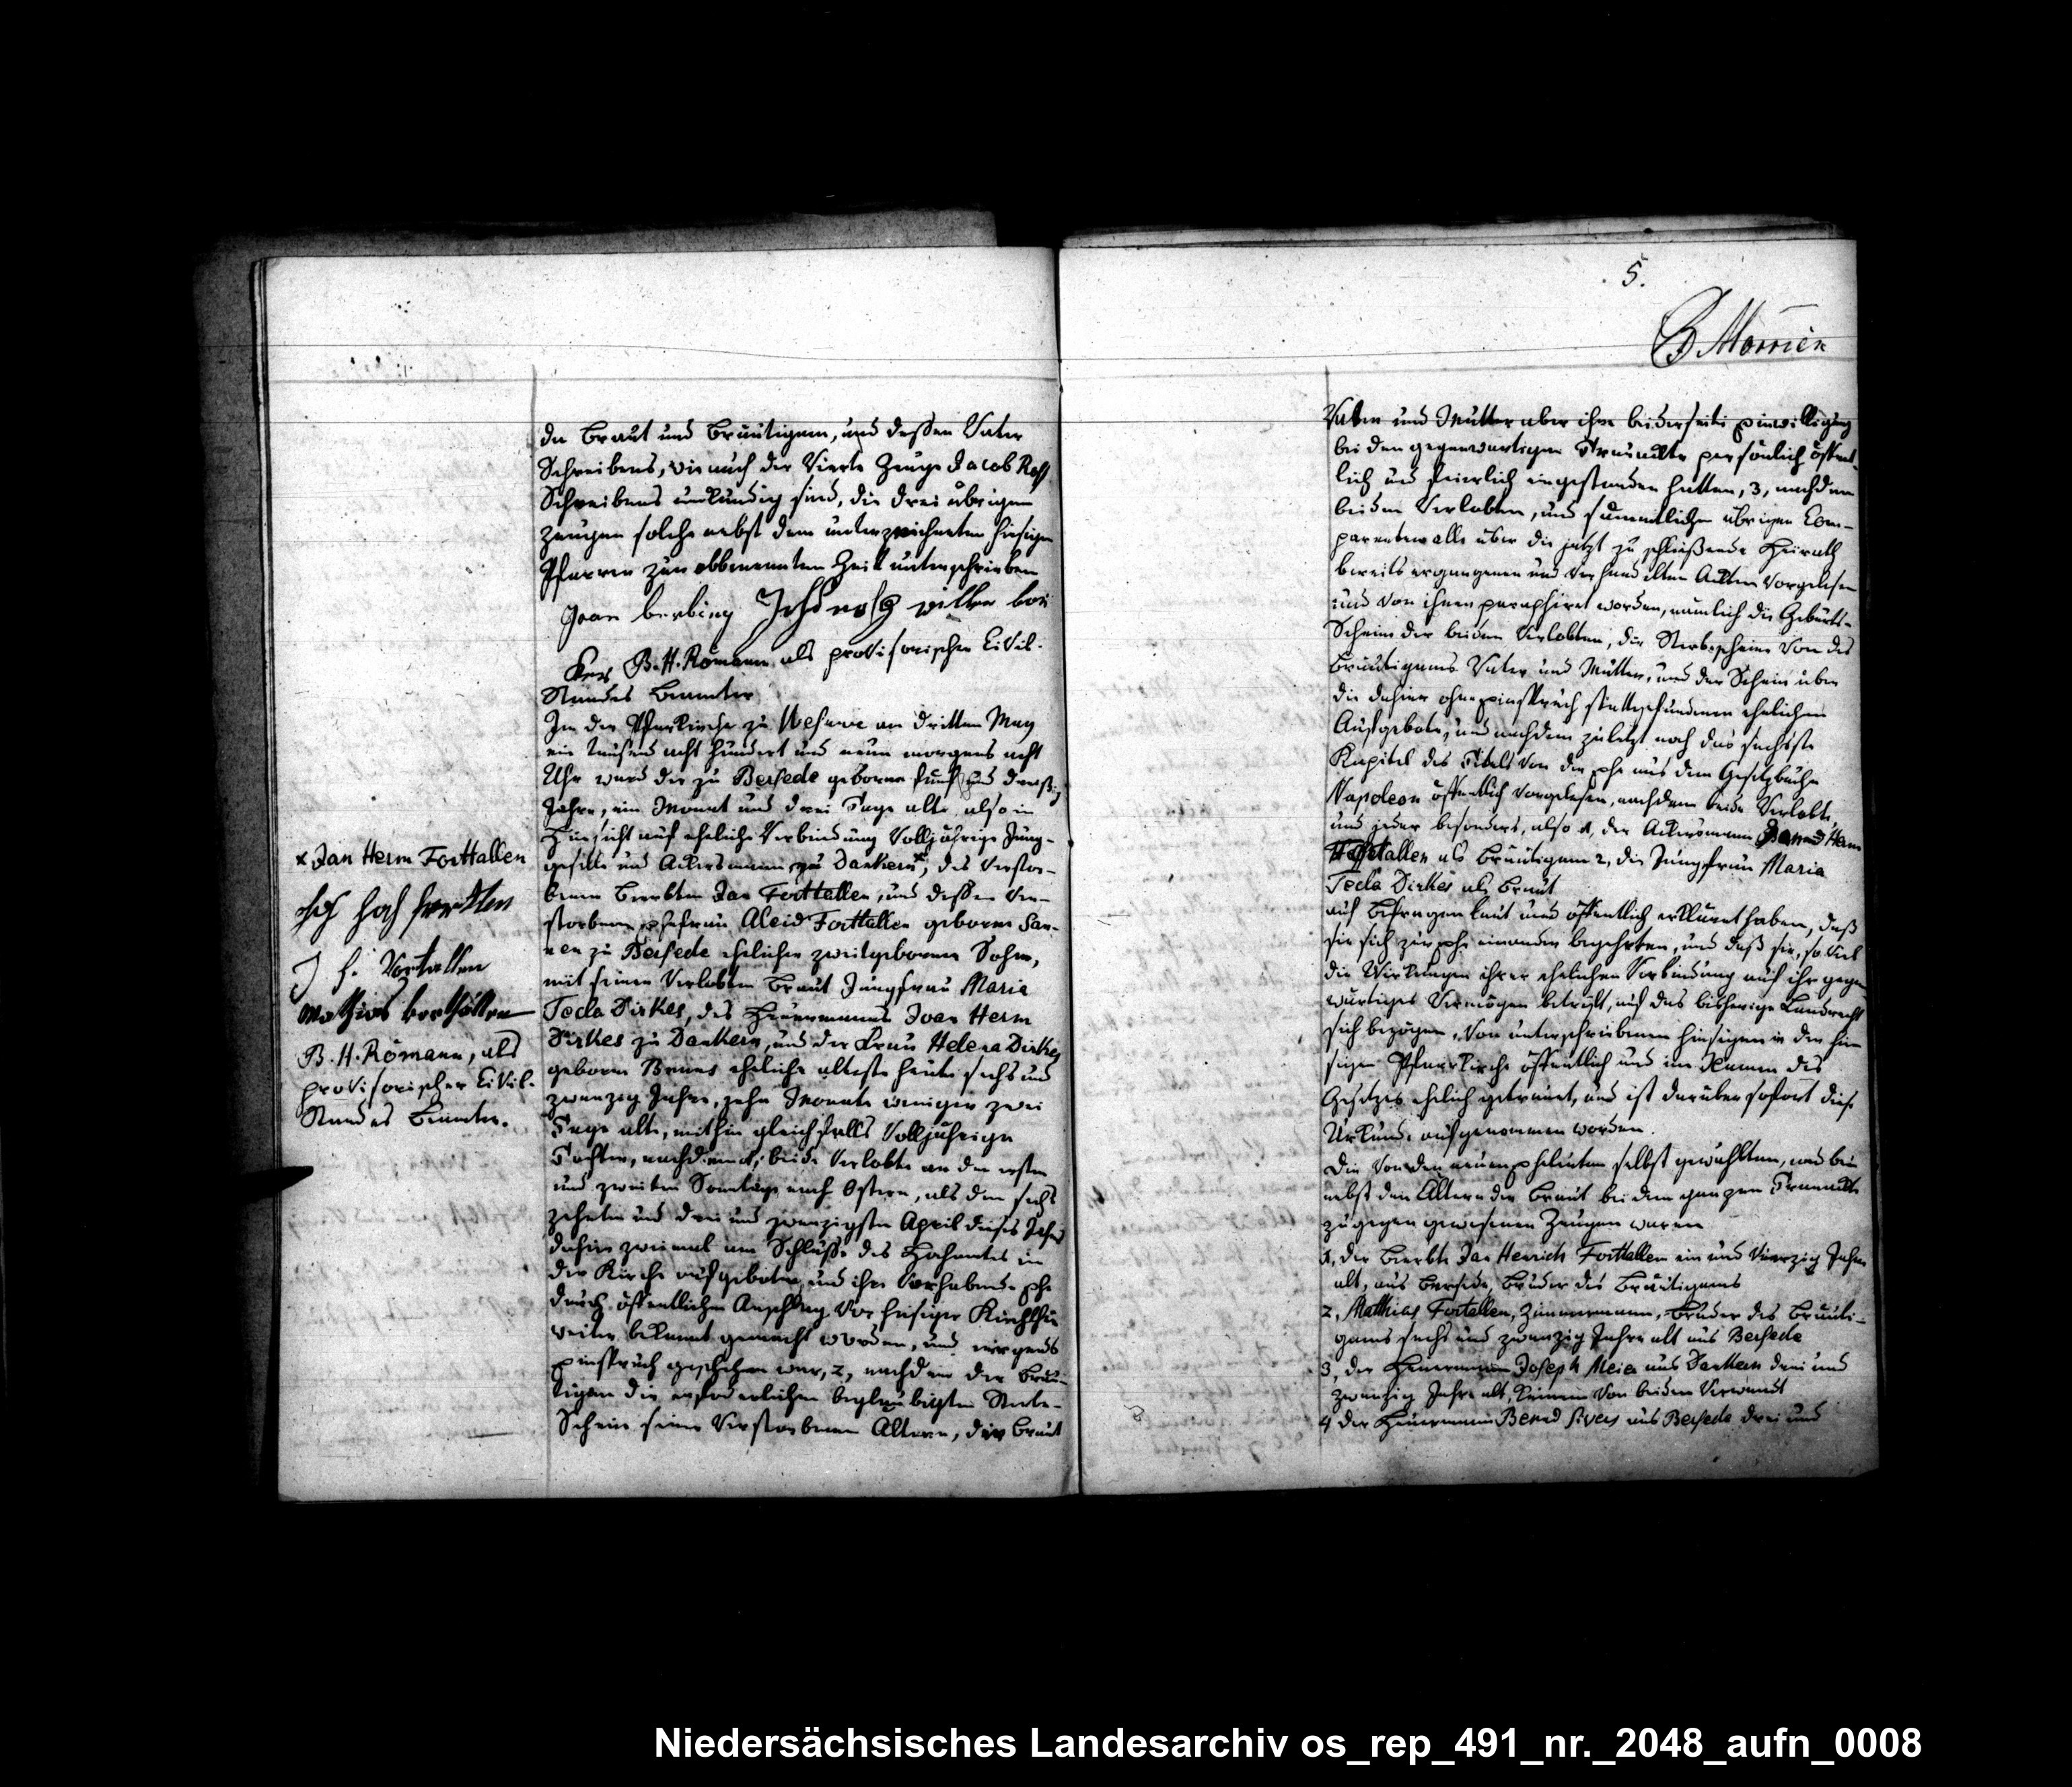 5.
B Morrien
der Braut und Bräutigam, und dessen Vater
Schreibens, wie auch der Vierte Zeuge Jacob
Schreibens unkundig sind, die drei übrigen
Zeugen solche nebst dem unterzeichneten hiesigen
Pfarrer zur obbenennten Zeit unterschrieben
B. H. Römann als provisorischer Civil-
Standes Beamter
In der Pfarrkirche zu Wesuwe am dritten May
ein tausend acht hundert und neun morgens acht
Uhr ward der zu Bersede geborne fünf und dreißig
Jahre, ein Monat und drei Tage alte, also in
Hinsicht auf eheliche Verbindung Volljährige Jung-
geselle und Ackersmann zu Dankern x, des Verstor-
benen Beerbten Jan Forttallen, und dessen Ver-
storbenen Ehefrau Aleid Forttallen geboren San-
nen zu Bersede ehelicher zweitgeborner Sohn,
mit seiner Verlobten Braut Jungfrau Maria
Tecla Dirkes, des Heuermanns Joan Herm
Dirkes zu Dankern, und der Frau Helena Dirkes
geboren Bruns eheliche älteste heute sechs und
zwanzig Jahre, zehn Monate weniger zwei
Tage alte, mithin gleichfalls Volljährige
Tochter, nachdem 1, beide Verlobte an den ersten
und zweiten Sonntage nach Ostern, als den sechs
zehnten und drei und zwanzigsten April dieses Jahrs
dahier zweimal am Schlusse des Hochamtes in
der Kirche aufgeboten, und ihr Vorhabende Ehe
durch öffentlichen Anschlag vor hiesiger Kirchthür
weiter bekannt gemacht worden, und nirgends
Einspruch geschehen war, 2, nachdem der Bräu-
tigam die erforderlichen beglaubigten Sterbe-
Schein seiner Verstorbenen Ältern, der Braut
x Jan Herm Forttallen
J H. Vortallen
Mathias
B. H. Römann, als
provisorischer Civil-
Standes Beamter.
Vater und Mutter aber ihre beiderseitige Einwilligung
bei den gegenwärtigen persönlich öffent-
lich und feierlich eingestanden hatten, 3, nachdem
beiden Verlobten, und sämmtlichen übrigen Com-
parenten alle über die jetzt zu schließende Heirath
bereits ergangenen und verhandelten Akten vorgelesen
und von ihnen paraphirt worden, nämlich die Geburts-
Scheine der beiden Verlobten, die Sterbescheine von des
Bräutigams Vater und Mutter, und der Schein über
die dahier ohne Einspruch stattgefundenen ehelichen
Aufgebote, und nachdem zuletzt noch das sechste
Kapitel des Titels von der Ehe aus dem Gesetzbuche
Napoleon öffentlich vorgelesen, nachdem beide Verlobte,
und jeder besonders, also 1, der Ackersmann Jan Herm
Forttallen als Bräutigam 2, die Jungfrau Maria
Tecla Dirkes als Braut
auf Befragen laut und öffentlich erklärt haben, daß
sie sich zur Ehe einander begehrten, und daß sie, so viel
die Wirkungen ihrer ehelichen Verbindung auf ihr gegen
wärtiges Vermögen betrifft, auf das bisherige Landrecht
sich bezögen, von unterschriebenem hiesigen in der hie
sigen Pfarrkirche öffentlich und im Namen des
Gesetzes ehelich getrauet, und ist darüber sofort diese
Urkunde aufgenommen worden.
Die von den neuen Eheleuten selbst gewählten, und bei
nebst den Ältern der Braut bei dem ganzen
zugegen gewesenen Zeugen waren
1, der Beerbte Jan Henrich Forttallen ein und vierzig Jahre
alt, aus Bersede, Bruder des Bräutigams
2, Mathias Fortallen, Zimmermann, Bruder des Bräuti-
gams sechs und zwanzig Jahre alt aus Bersede
3, der Heuermann Joseph Meier aus Dankern drei und
zwanzig Jahre alt, keinem von beiden Verwandt
4 der Heuermann Bernd Sivers aus Bersede drei und
Niedersächsisches Landesarchiv os_rep_491_nr._2048_aufn_0008